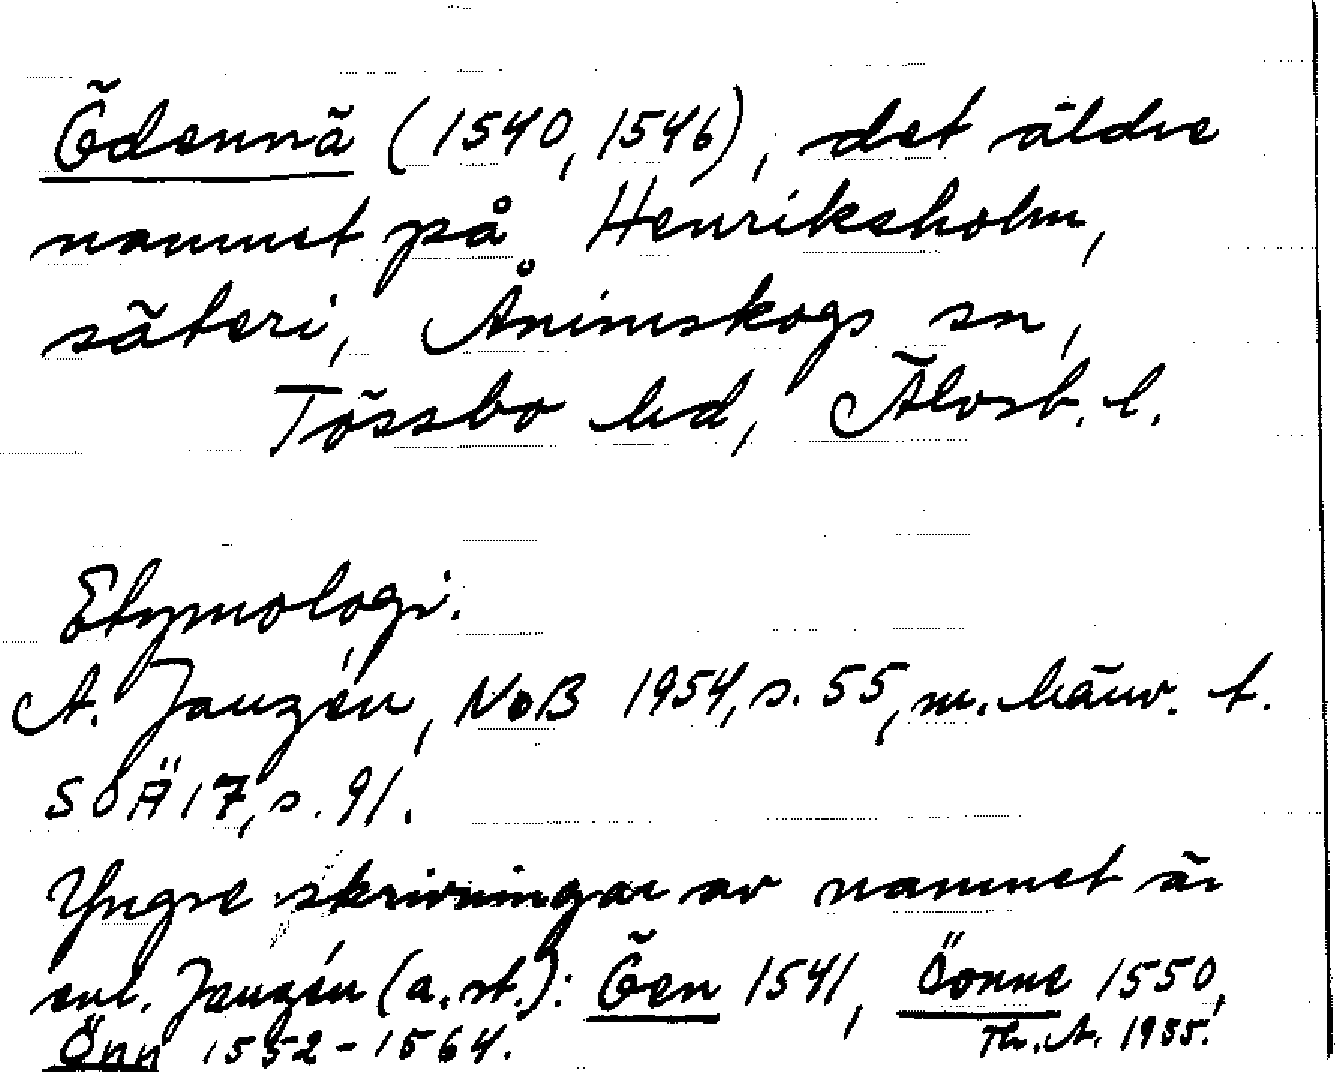 Ödennä (1540, 1546), det äldre
namnet på Henriksholm,
säteri, Ånimskogs sn,
Tössbo hd, Älvsb. l.
Etymologi.
A. Janzén, NoB 1954, s. 55, m. hänv. t.
SOÄ 17, s. 91.
Yngre skrivningar av namnet är
enl. Janzén (a. st.): Öen 1541, Öonne 1550,
Önn 1552-1564.
Th. A. 1955.